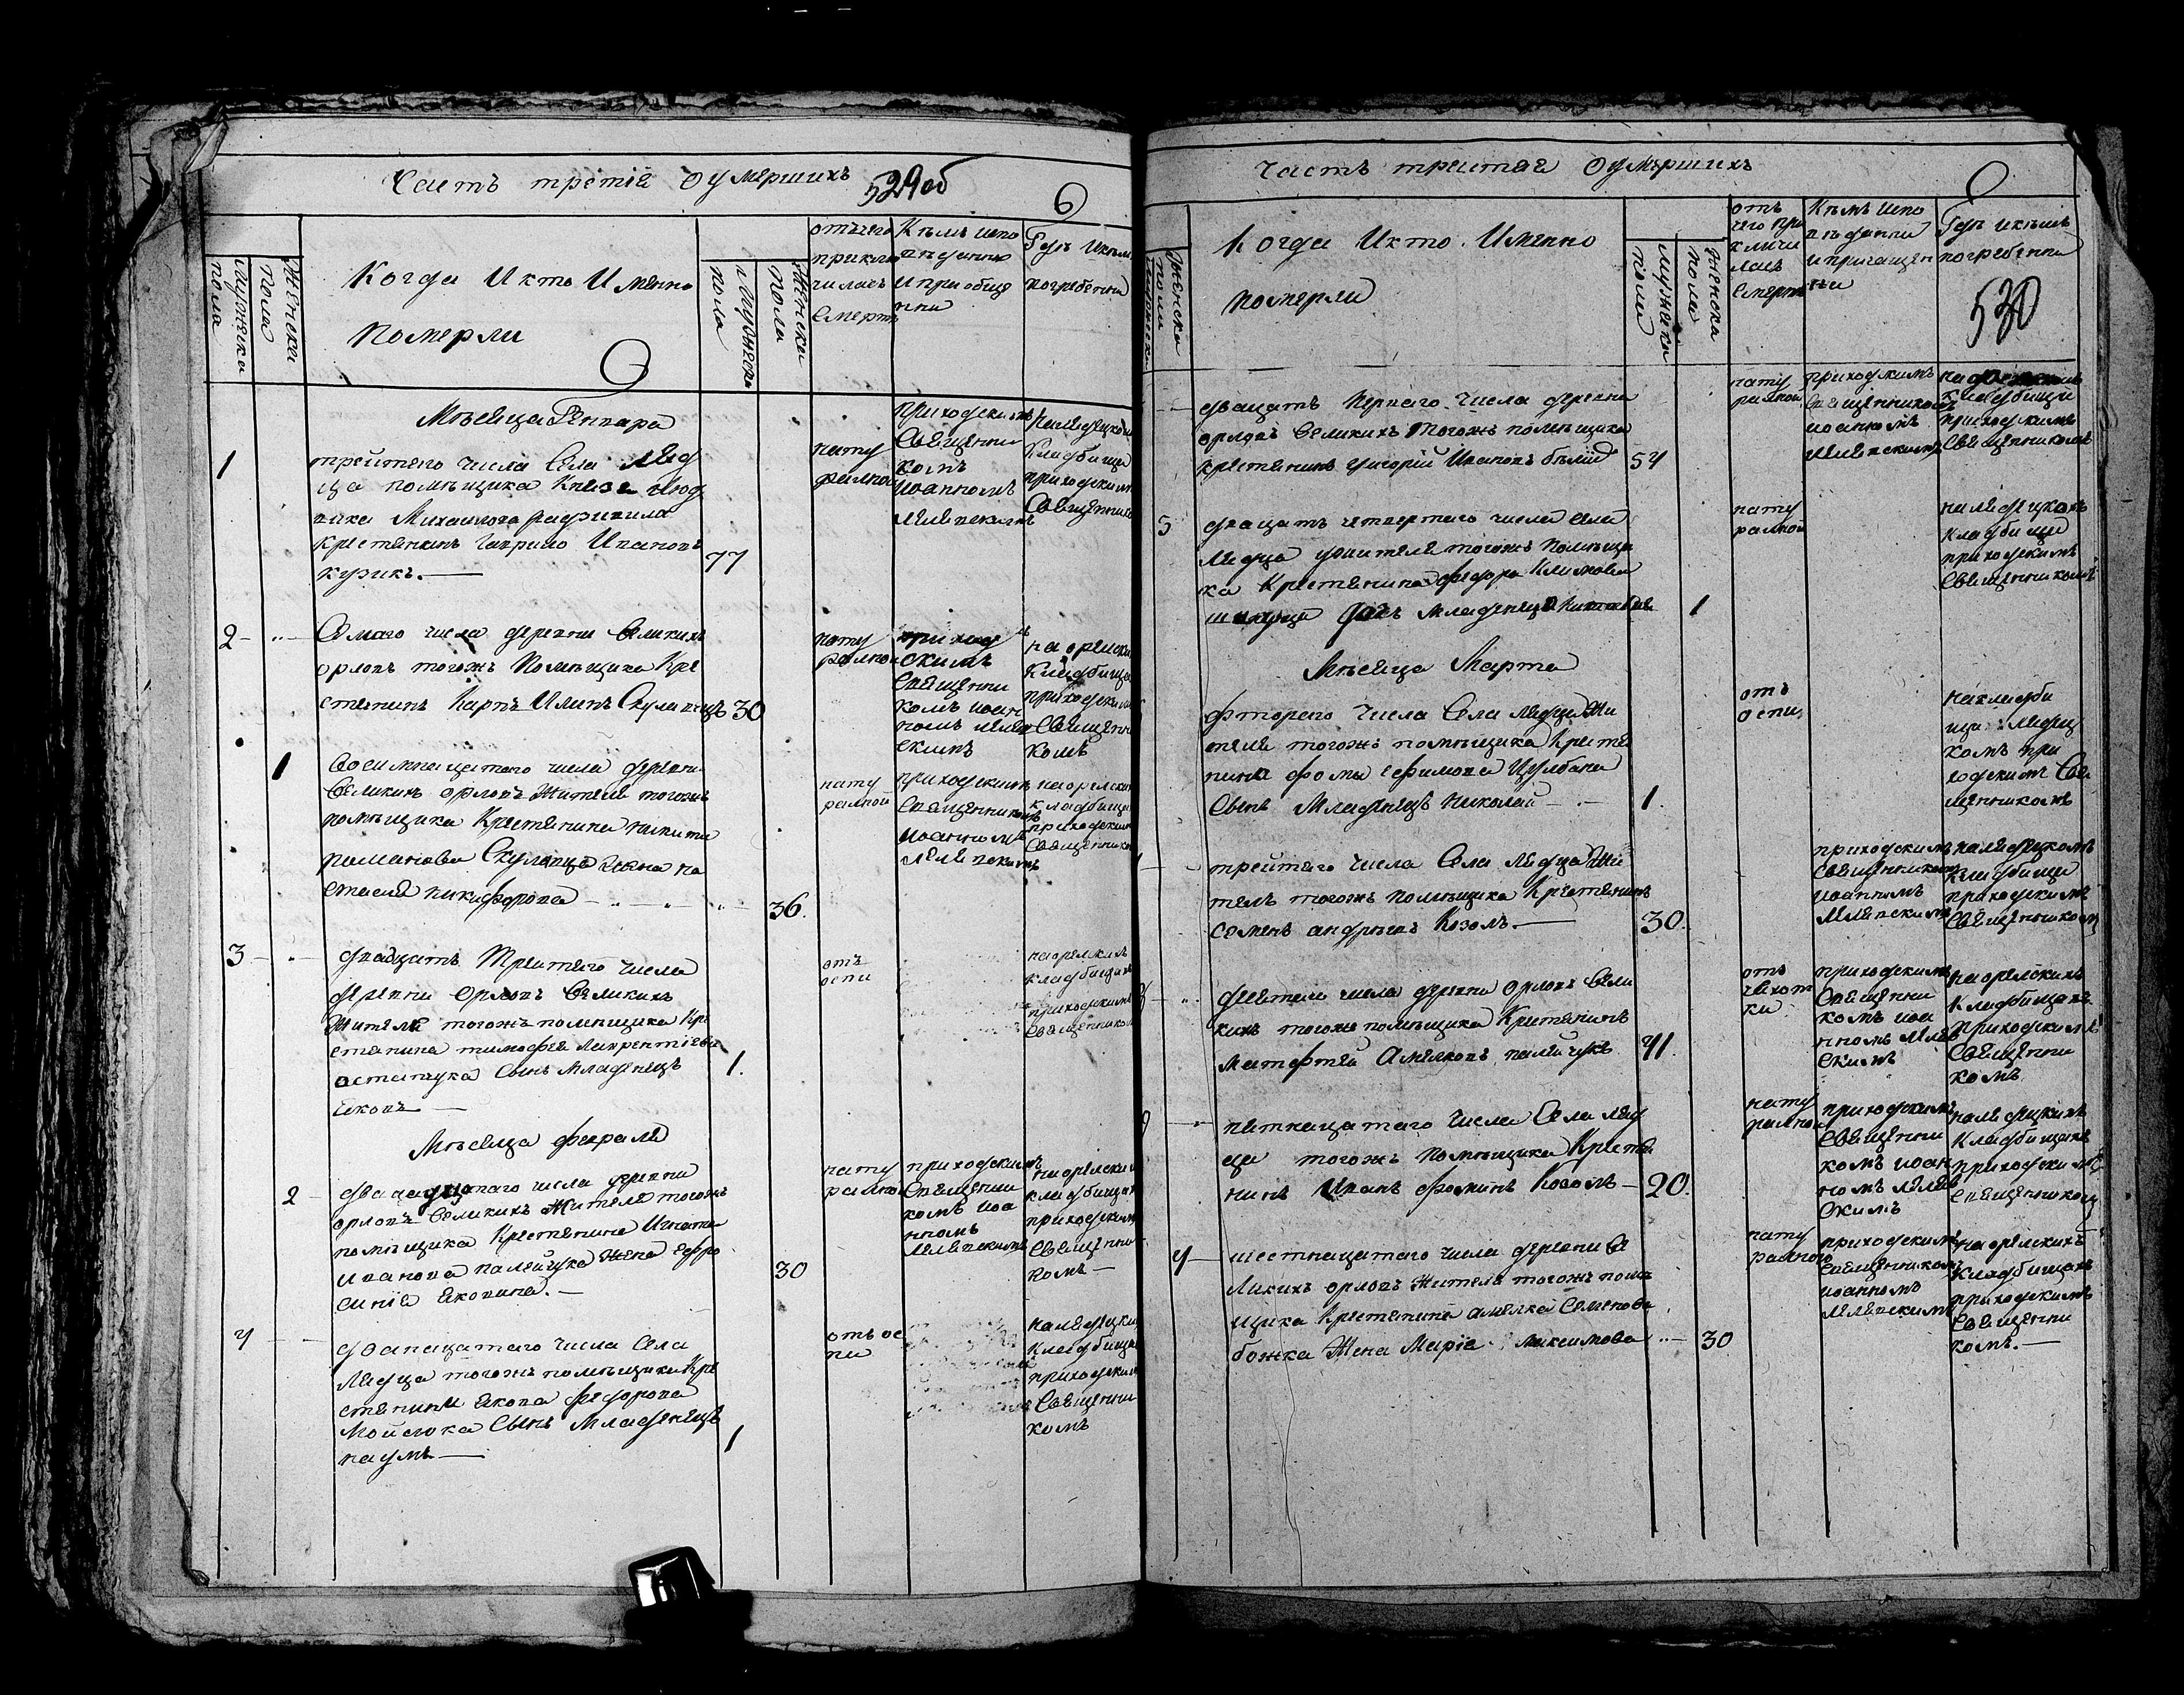 Часть третія оумершихъ
529об
Мужеска пола
Женска пола
Когда и кто именно
померли
Мужеска пола
Женска пола
отъ чего
приклю
чилась
смерть
Кѣмъ испо
вѣданы
и приобще
ны
Гдѣ и кѣмъ
погребенны
Мѣсяца Генвара
1
третяго числа села Ляд
ца помѣщика Князя
вика Михаилова
крестянинъ Гаврило Ивановъ
кузикъ.
77
нату
ралной
приходскимъ
священни
комъ
иоанномъ
кладбищи
приходскимъ
священник
2
Семаго числа деревни Великихъ
орловъ тогожъ помѣщика кре
стянинъ Карпъ Илинъ Скулавецъ
30
нату
ралной
приход
скимъ
священни
комъ иоан
номъ
скимъ
на орлски
кладбища
приходским
священни
комъ
1
Восимнацатаго числа деревни
Великихъ орловъ жителя тогожъ
помѣщика крестянина никити
романова Скулавца жена на
стасия никифорова
36.
нату
ралной
приходскимъ
священникомъ
иоанномъ
на орлских
кладбища
приходским
священнико
3
двадцать третяго числа
деревни орловъ Великихъ
жителя тогожъ помѣщика кре
стянина тимофея лаврентіева
остапчука сынъ младенецъ
яковъ
1.
отъ
оспи
на орлскихъ
кладбищахъ
приходскимъ
священником
Мѣсяца февраля
2
числа деревни
орловъ Великихъ жителя тогожъ
помѣщика крестянина Игната
иванова палейчука жена евфро
синія яковина.
30
нату
ралной
приходскимъ
священни
комъ иоа
нномъ
на орлских
кладбищах
приходским
священни
комъ
4
дванацатаго числа села
Лядца тогожъ помѣщика кре
стянини якова федорова
Мойсюка сынъ младенецъ
наумъ
1
отъ ос
пи
на лядцки
кладбища
приходским
священни
комъ
Часть третія оумершихъ
Мужеска пола
Женска пола
Когда и кто именно
померли
Мужеска пола
Женска пола
отъ
чего при
ключи
лась
смерть
Кѣмъ испо
вѣданны
и причащен
ни
Гдѣ и кѣмъ
погребенны
530
двацать первого числа деревни
орловъ Великихъ тогожъ помѣщика
крестянинъ григорій Ивановъ бѣлій
54
нату
ралной
приходскимъ
священникомъ
иоанномъ
кладбищи
приходскимъ
священникомъ
5
двацать четвертаго числа села
Лядца жителя тогожъ помѣщи
ка крестянина федора Климова
младенецъ
1
нату
ралной
на лядцкомъ
кладбищи
приходскимъ
священникомъ
Мѣсяца Марта
фторого числа села лядца жи
теля тогожъ помѣщика крестя
нина фомы ефимова Цулбани
сынъ младенецъ николай
1.
отъ
оспи
на кладби
щи лядц
комъ при
ходскимъ свя
щенникомъ
третяго числа села лядца жи
тель тогожъ помѣщика крестянинъ
семенъ андрѣевъ Козолъ.
30.
приходскимъ
священникомъ
иоанномъ
на лядцкомъ
кладбищи
приходскимъ
священникомъ
девятого числа деревни орловъ вели
кихъ тогожъ помѣщика крестянинъ
матфтей амелковъ палейчукъ
41.
отъ
чехот
ки
приходскимъ
священни
комъ иоа
нномъ
скимъ
на орлскихъ
кладбищахъ
приходскимъ
священни
комъ
пятнацатаго числа села ляд
ца тогожъ помѣщика крестя
нинъ Иванъ фоминъ Козолъ
20.
нату
ралной
приходскимъ
священни
комъ иоан
номъ
скимъ
на лядцкихъ
кладбищахъ
приходскимъ
священником
4
шестнацатаго числа деревни ве
ликихъ орловъ жителя тогожъ помѣ
щика крестянина амелка Семенова
божка жена Маріа максимова
30
нату
ралною
приходскимъ
священникомъ
иоанномъ
на орлскихъ
кладбищахъ
приходскимъ
священни
комъ.